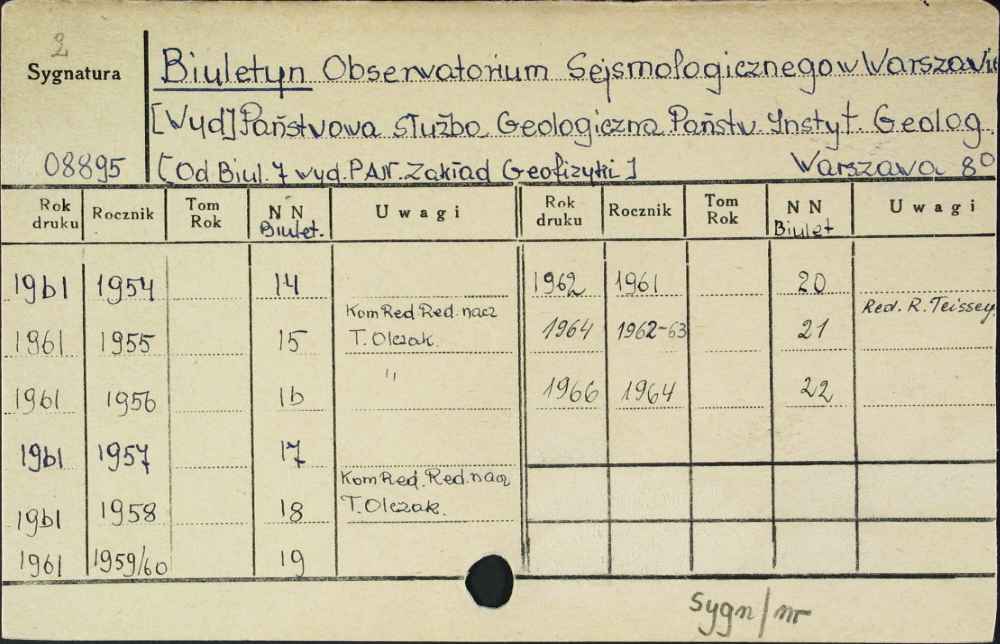 2
Sygnatura
Biuletyn Obserwatorium Sejsmologicznego w Warszawie
[Wyd] Państwowa Służba Geologiczna Państw. Instyt. Geolog.
08895 [Od Biul. 7 wyd. PAN. Zakład Geofizyki] Warszawa 8°
Rok druku Rocznik Tom Rok NN Biulet. Uwagi Rok druku Rocznik Tom Rok NN Biulet Uwagi
1961 1954 14 1962 1961 20
Kom Red Red. nacz Red. R. Teissey
1961 1955 15 T. Olczak. 1964 1962-63 21
1961 1956 16 " 1966 1964 22
1961 1957 17
Kom Red. Red. nacz
1961 1958 18 T. Olczak.
1961 1959/60 19
sygn/nr